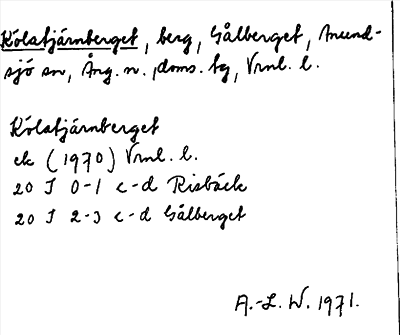 Kölstjärnberget, berg, Gålberget, Anund-
sjö sn, Ång. n., doms. tg, Vrnl. l.
Kölstjärnberget
ek (1970) Vrnl. l.
20 I 0-1 c-d Risbäck
20 I 2-3 c-d Gålberget
A.-L. W. 1971.